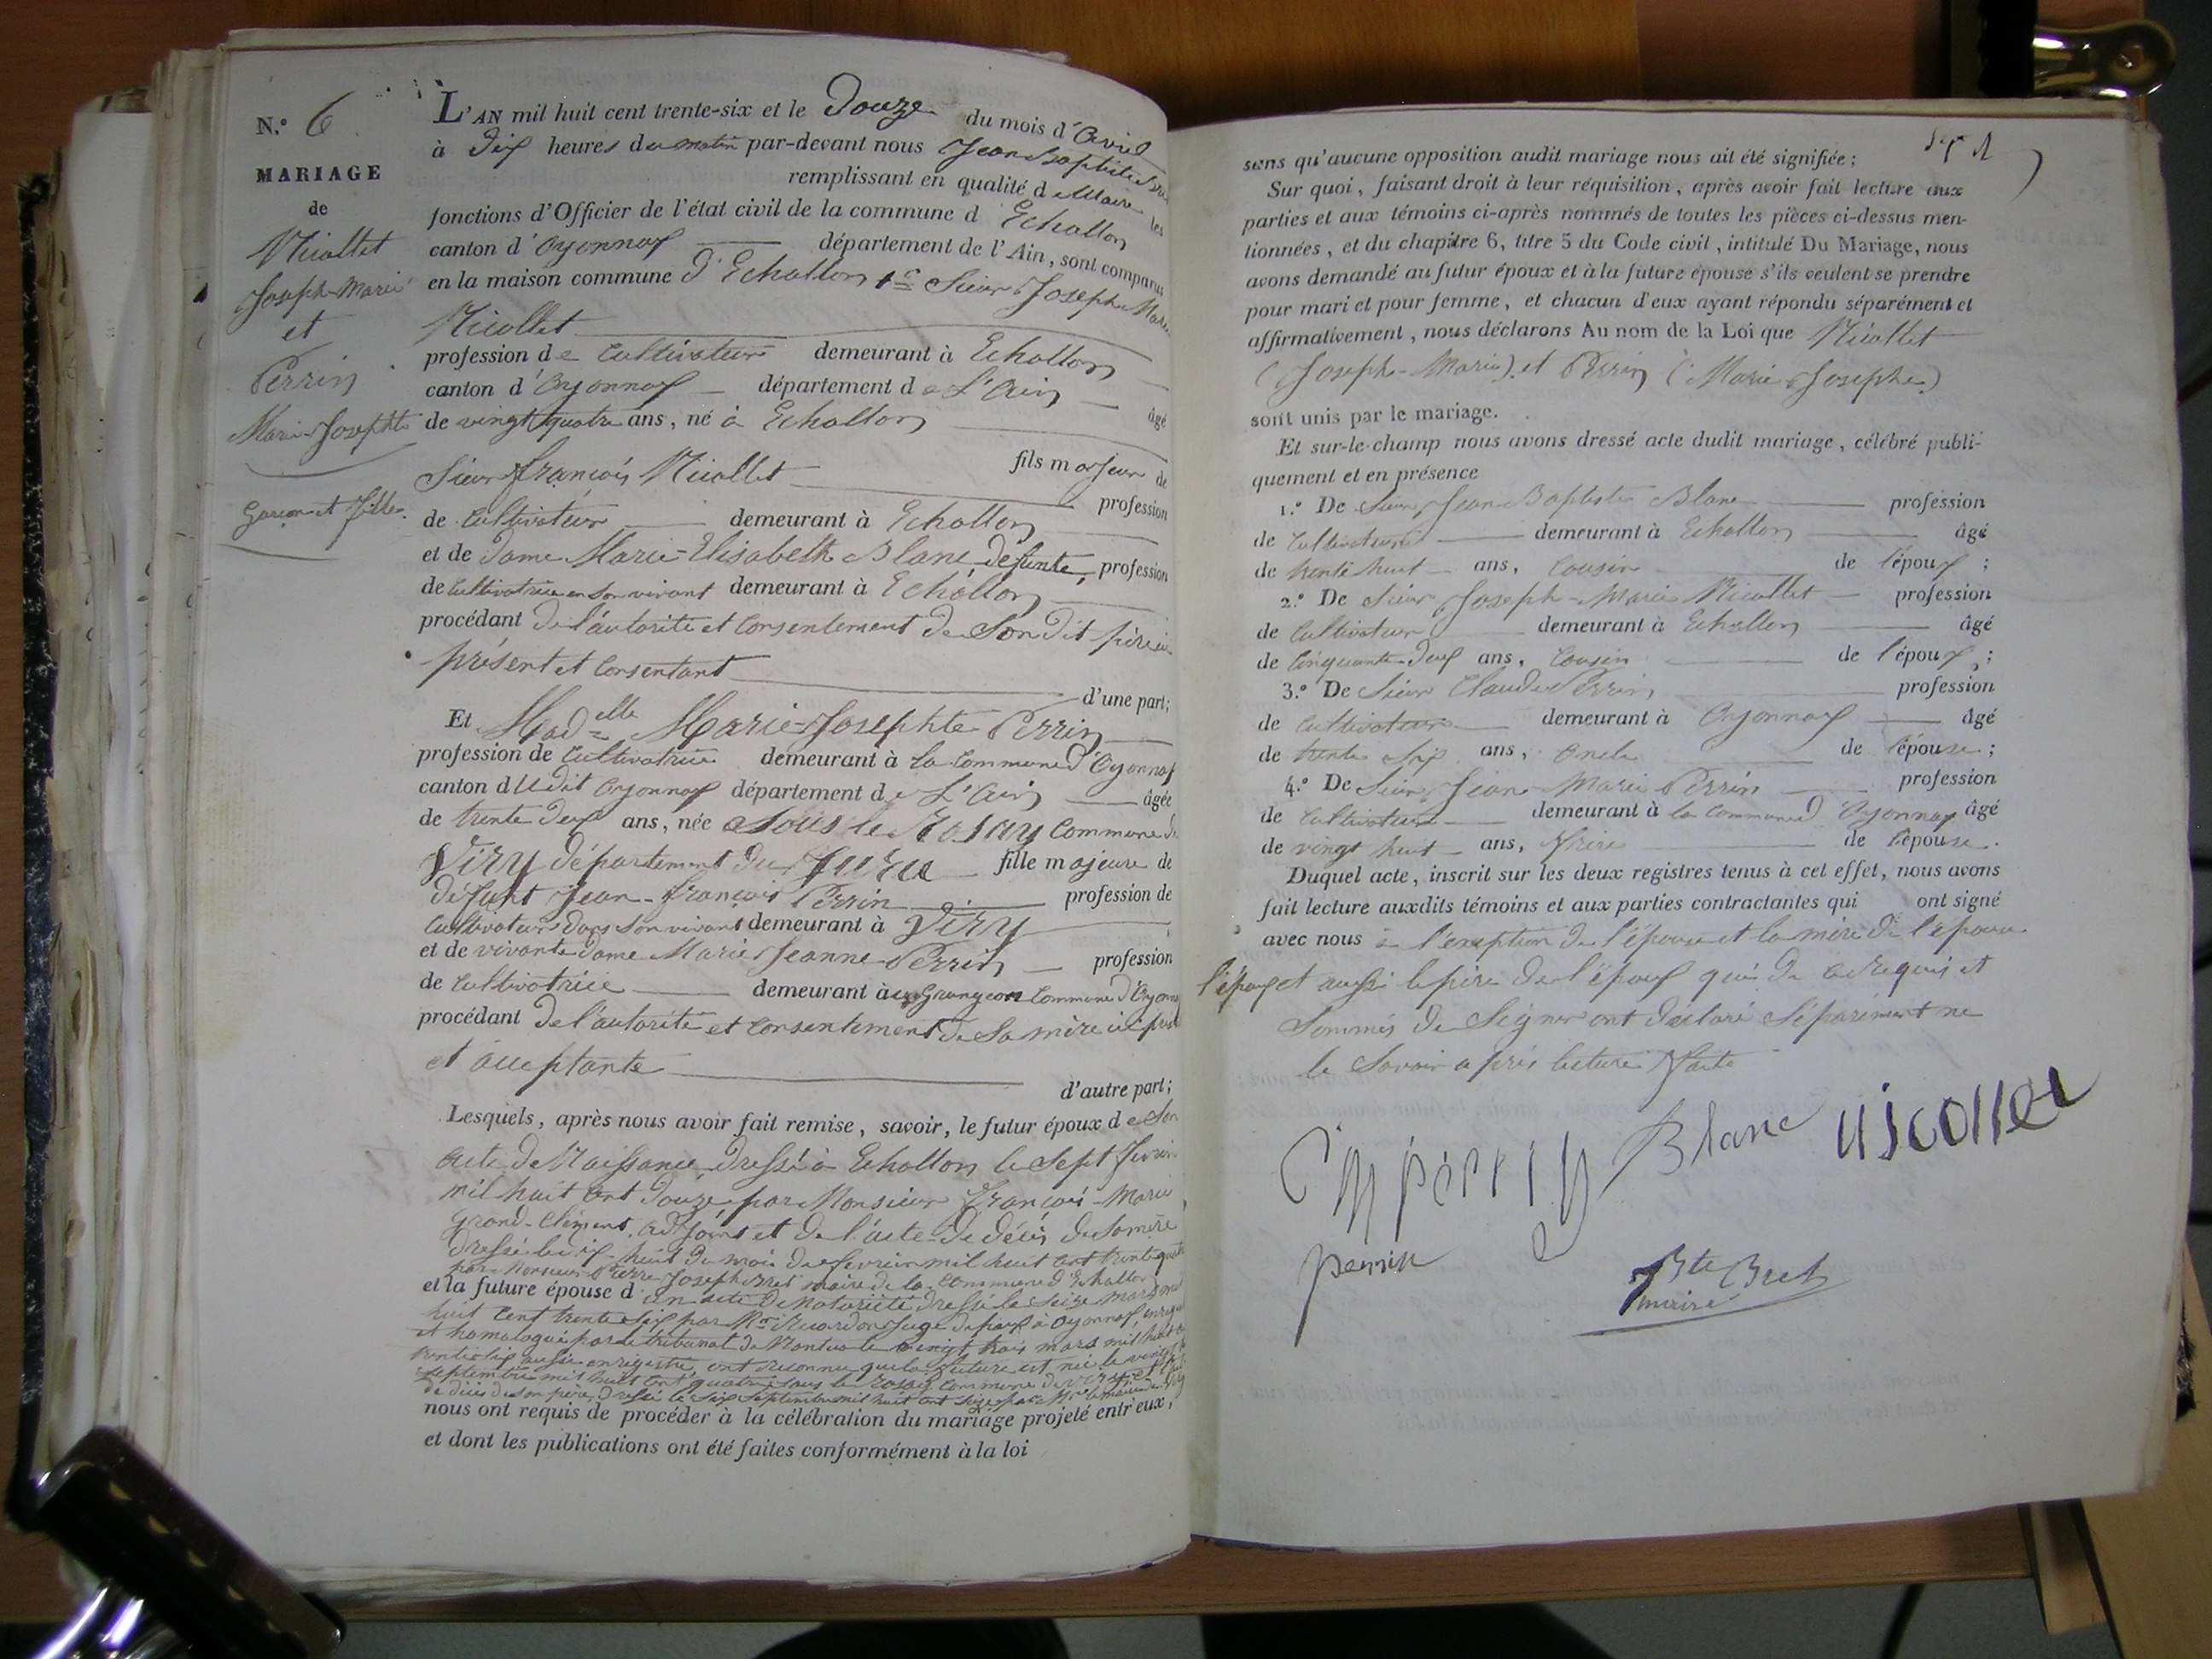 N.º 6
MARIAGE
de
Nicollet
Joseph-Marie
et
Perrin
Marie Josephte
Garçon et fille
L'AN mil huit cent trente-six et le Douze du mois d'Avril
à Dix heures du matin par-devant nous Jean Baptiste
remplissant en qualité de Maire les
fonctions d'Officier de l'état civil de la commune d'Echallon
canton d'Oyonnax département de l'Ain, sont comparus
en la maison commune d'Echallon 1º Sieur Joseph Marie
Nicollet
profession de Cultivateur demeurant à Echallon
canton d'Oyonnax département de L'Ain âgé
de vingt quatre ans, né à Echallon
fils majeur de
Sieur françois Nicollet profession
de Cultivateur demeurant à Echallon
et de Dame Marie-Elisabeth Blanc défunte, profession
de Cultivatrice en son vivant demeurant à Echallon
procédant De l'autorité et consentement de Son dit père ici
présent et Consentant
d'une part;
Et Madelle Marie-Josephte Perrin
profession de Cultivatrice demeurant à la Commune d'Oyonnax
canton dudit Oyonnax département de L'Ain âgée
de trente deux ans, née a Sous le Rosay Commune de
Viry département du Jura fille majeure de
défunt Jean-françois Perrin profession de
Cultivateur dans Son vivant demeurant à Viry
et de vivante Dame Marie Jeanne Perrin profession
de Cultivatrice demeurant à Grangeon Commune d'Oyonnax
procédant De l'autorité et consentement de Sa mère ici
et acceptante
d'autre part;
Lesquels, après nous avoir fait remise, savoir, le futur époux de Son
acte De Naissance Dressé à Echallon le Sept février
mil huit cent Douze par Monsieur françois-Marie
Grand-Clément adjoint et de l'acte De décès de Sa mère
Dressé le dix-huit Du mois De fevrier mil huit cent trente quatre
par Monsieur Pierre Joseph Bret maire de la Commune d'Echallon
et la future épouse d'un acte De Notoriété Dressé le Seize mars mil
huit Cent trente six par Mr. juge de paix à Oyonnax enregistré
et homologué par le tribunal de Nantua le vingt trois mars mil huit cent
trente six aussi enregistré, ont reconnu que la future est née le vingt
Septembre mil huit cent quatre sous le Rosay Commune de Viry et
de décès de son père Dressé le Six Septembre mil huit cent Seize par Mr le maire de Viry
nous ont requis de procéder à la célébration du mariage projeté entr'eux,
et dont les publications ont été faites conformément à la loi
sans qu'aucune opposition audit mariage nous ait été signifiée;
Sur quoi, faisant droit à leur réquisition, après avoir fait lecture aux
parties et aux témoins ci-après nommés de toutes les pièces ci-dessus men-
tionnées, et du chapitre 6, titre 5 du Code civil, intitulé Du Mariage, nous
avons demandé au futur époux et à la future épouse s'ils veulent se prendre
pour mari et pour femme, et chacun d'eux ayant répondu séparément et
affirmativement, nous déclarons Au nom de la Loi que Nicollet
(Joseph-Marie) et Perrin (Marie Josephe)
sont unis par le mariage.
Et sur-le-champ nous avons dressé acte dudit mariage, célébré publi-
quement et en présence
1.º De Sieur Jean Baptiste Blanc profession
de Cultivateur demeurant à Echallon âgé
de trente huit ans, Cousin de l'époux;
2.º De Sieur Joseph-Marie Nicollet profession
de Cultivateur demeurant à Echallon âgé
de Cinquante Deux ans, Cousin de l'époux;
3.º De Sieur Claude Perrin profession
de Cultivateur demeurant à Oyonnax âgé
de trente Six ans, Oncle de l'épouse;
4.º De Sieur Jean Marie Perrin profession
de Cultivateur demeurant à la Commune d'Oyonnax âgé
de vingt huit ans, frère de l'épouse.
Duquel acte, inscrit sur les deux registres tenus à cet effet, nous avons
fait lecture auxdits témoins et aux parties contractantes qui ont signé
avec nous à l'exeption De l'épouse et la mère De l'épouse
l'époux et aussi le père De l'époux qui De ce requis et
Sommés De Signer ont déclaré Séparément ne
le Savoir après lecture faite
perrin Blanc nicollet
perrin
Bte Bret
maire